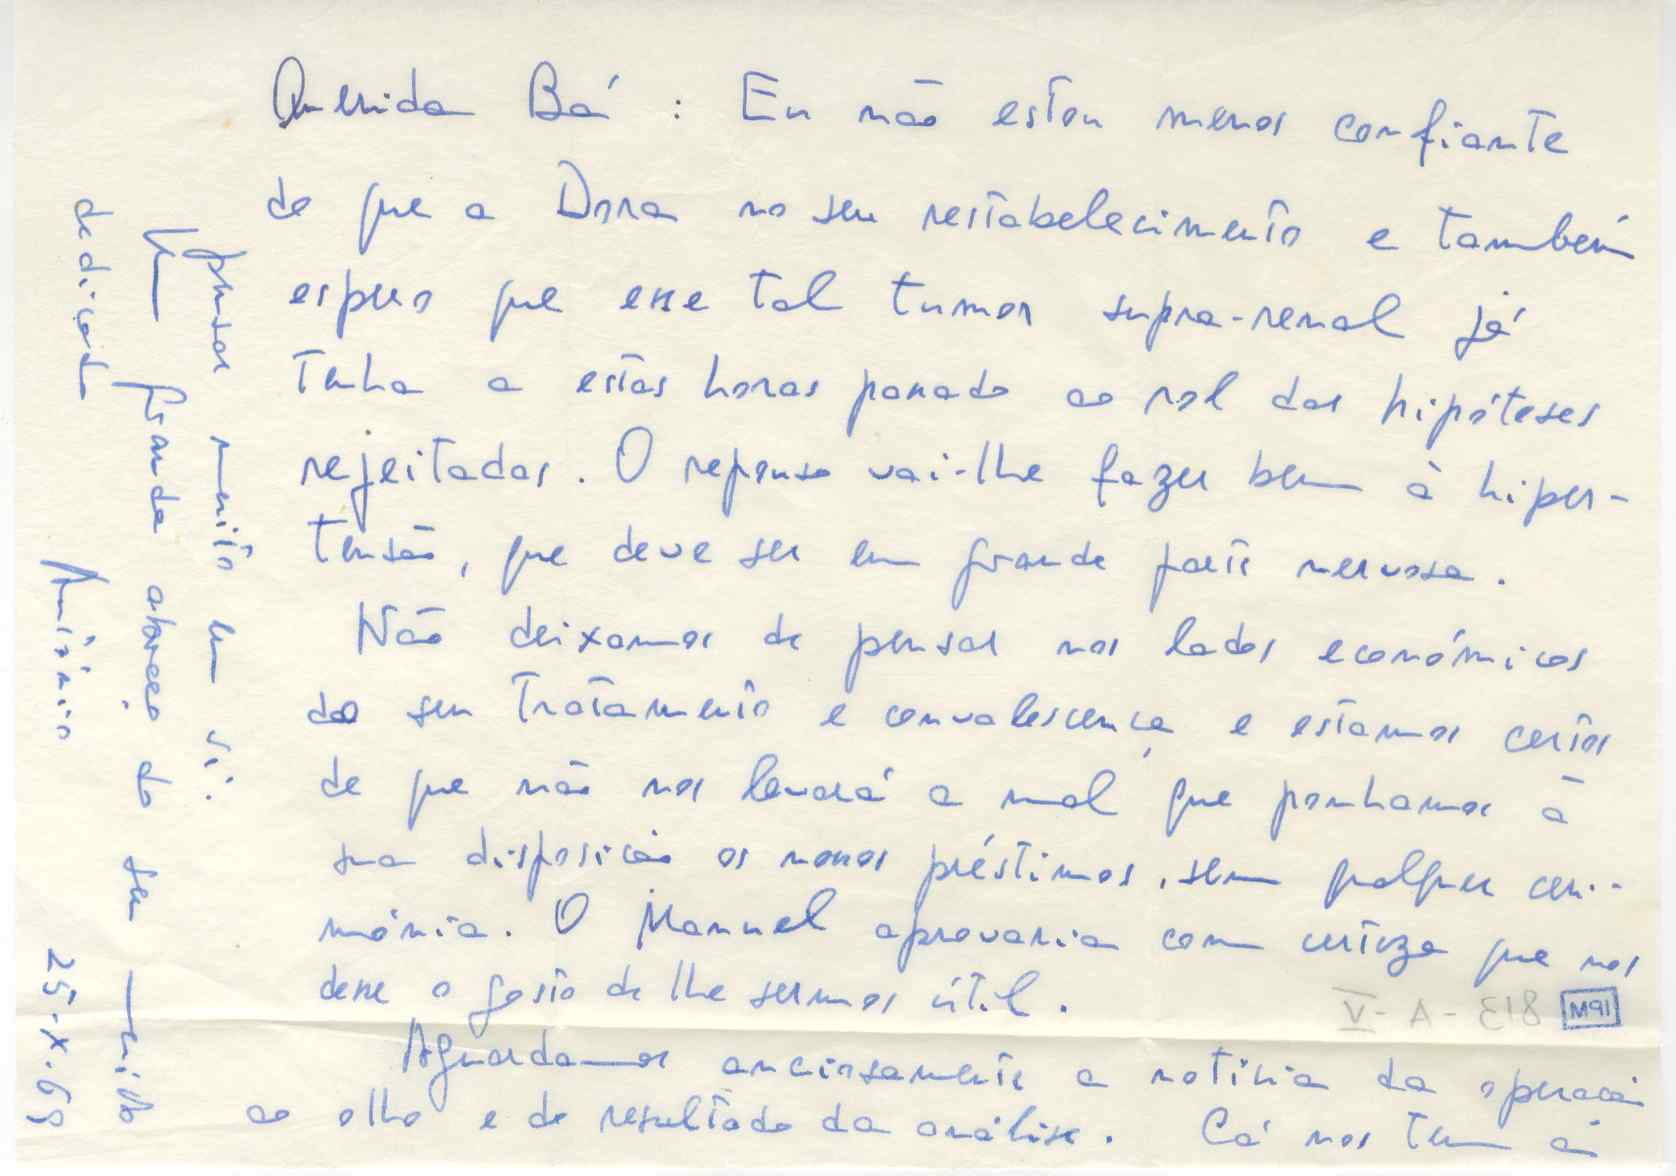 Querida Bá: Eu não estou menos confiante
do que a Dora no seu restabelecimento e também
espero que esse tal tumor supra-renal já
tenha a estas horas passado ao rol das hipóteses
rejeitadas. O repouso vai-lhe fazer bem à hiper-
tensão, que deve ser em grande parte nervosa.
Não deixamos de pensar nos lados económicos
do seu tratamento e convalescença e estamos certos
de que não nos levará a mal que ponhamos à
sua disposição os nossos préstimos, sem qualquer ceri-
mónia. O Manuel aprovaria com certeza que nos
desse o gosto de lhe sermos útil.
Aguardamos anciosamente a notícia da operação
ao olho e do resultado da análise. Cá nos tem a
pensar muito em si.
Um grande abraço do seu muito
dedicado
António
25-X-69
V - A - 813
M91